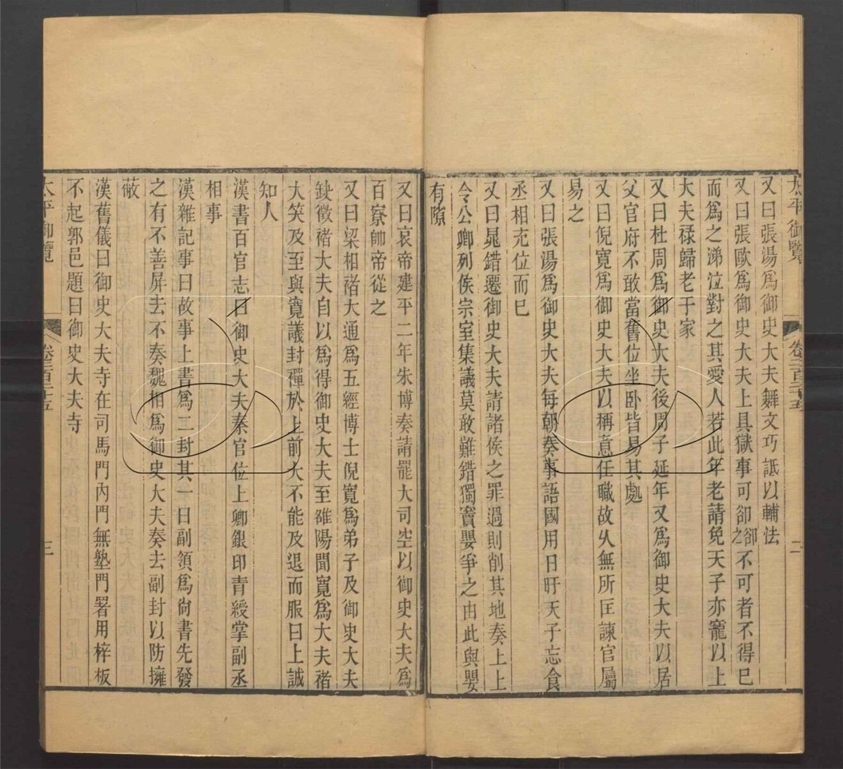 太平御覽 卷二百二十五 二
又曰張湯爲御史大夫舞文巧詆以輔法
又曰張歐爲御史大夫上具獄事可卻卻之不可者不得已
而爲之涕泣對之其愛人若此年老請免天子亦寵以上
大夫禄歸老于家
又曰杜周爲御史大夫後周子延年又爲御史大夫以居
父官府不敢當舊位坐卧皆易其處
又曰倪寬爲御史大夫以稱意任職故久無所匡諫官屬
易之
又曰張湯爲御史大夫每朝奏事語國用日旰天子忘食
丞相充位而已
又曰晁錯遷御史大夫請諸侯之罪過則削其地奏上上
令公卿列侯宗室集議莫敢難錯獨竇嬰爭之由此與嬰
有隙
又曰哀帝建平二年朱博奏請罷大司空以御史大夫爲
百寮帥帝從之
又曰梁相禇大通爲五經博士倪寬爲弟子及御史大夫
缺徵禇大夫自以爲得御史大夫至雒陽聞寬爲大夫禇
大笑及至與寬議封禪於上前大不能及退而服曰上誠
知人
漢書百官志曰御史大夫秦官位上卿銀印青綬掌副丞
相事
漢雜記事曰故事上書爲二封其一曰副領爲尚書先發
之有不善屏去不奏魏相爲御史大夫奏去副封以防擁
蔽
漢舊儀曰御史大夫寺在司馬門內門無塾門署用梓板
不起郭邑題曰御史大夫寺
太平御覽 卷二百二十五 三